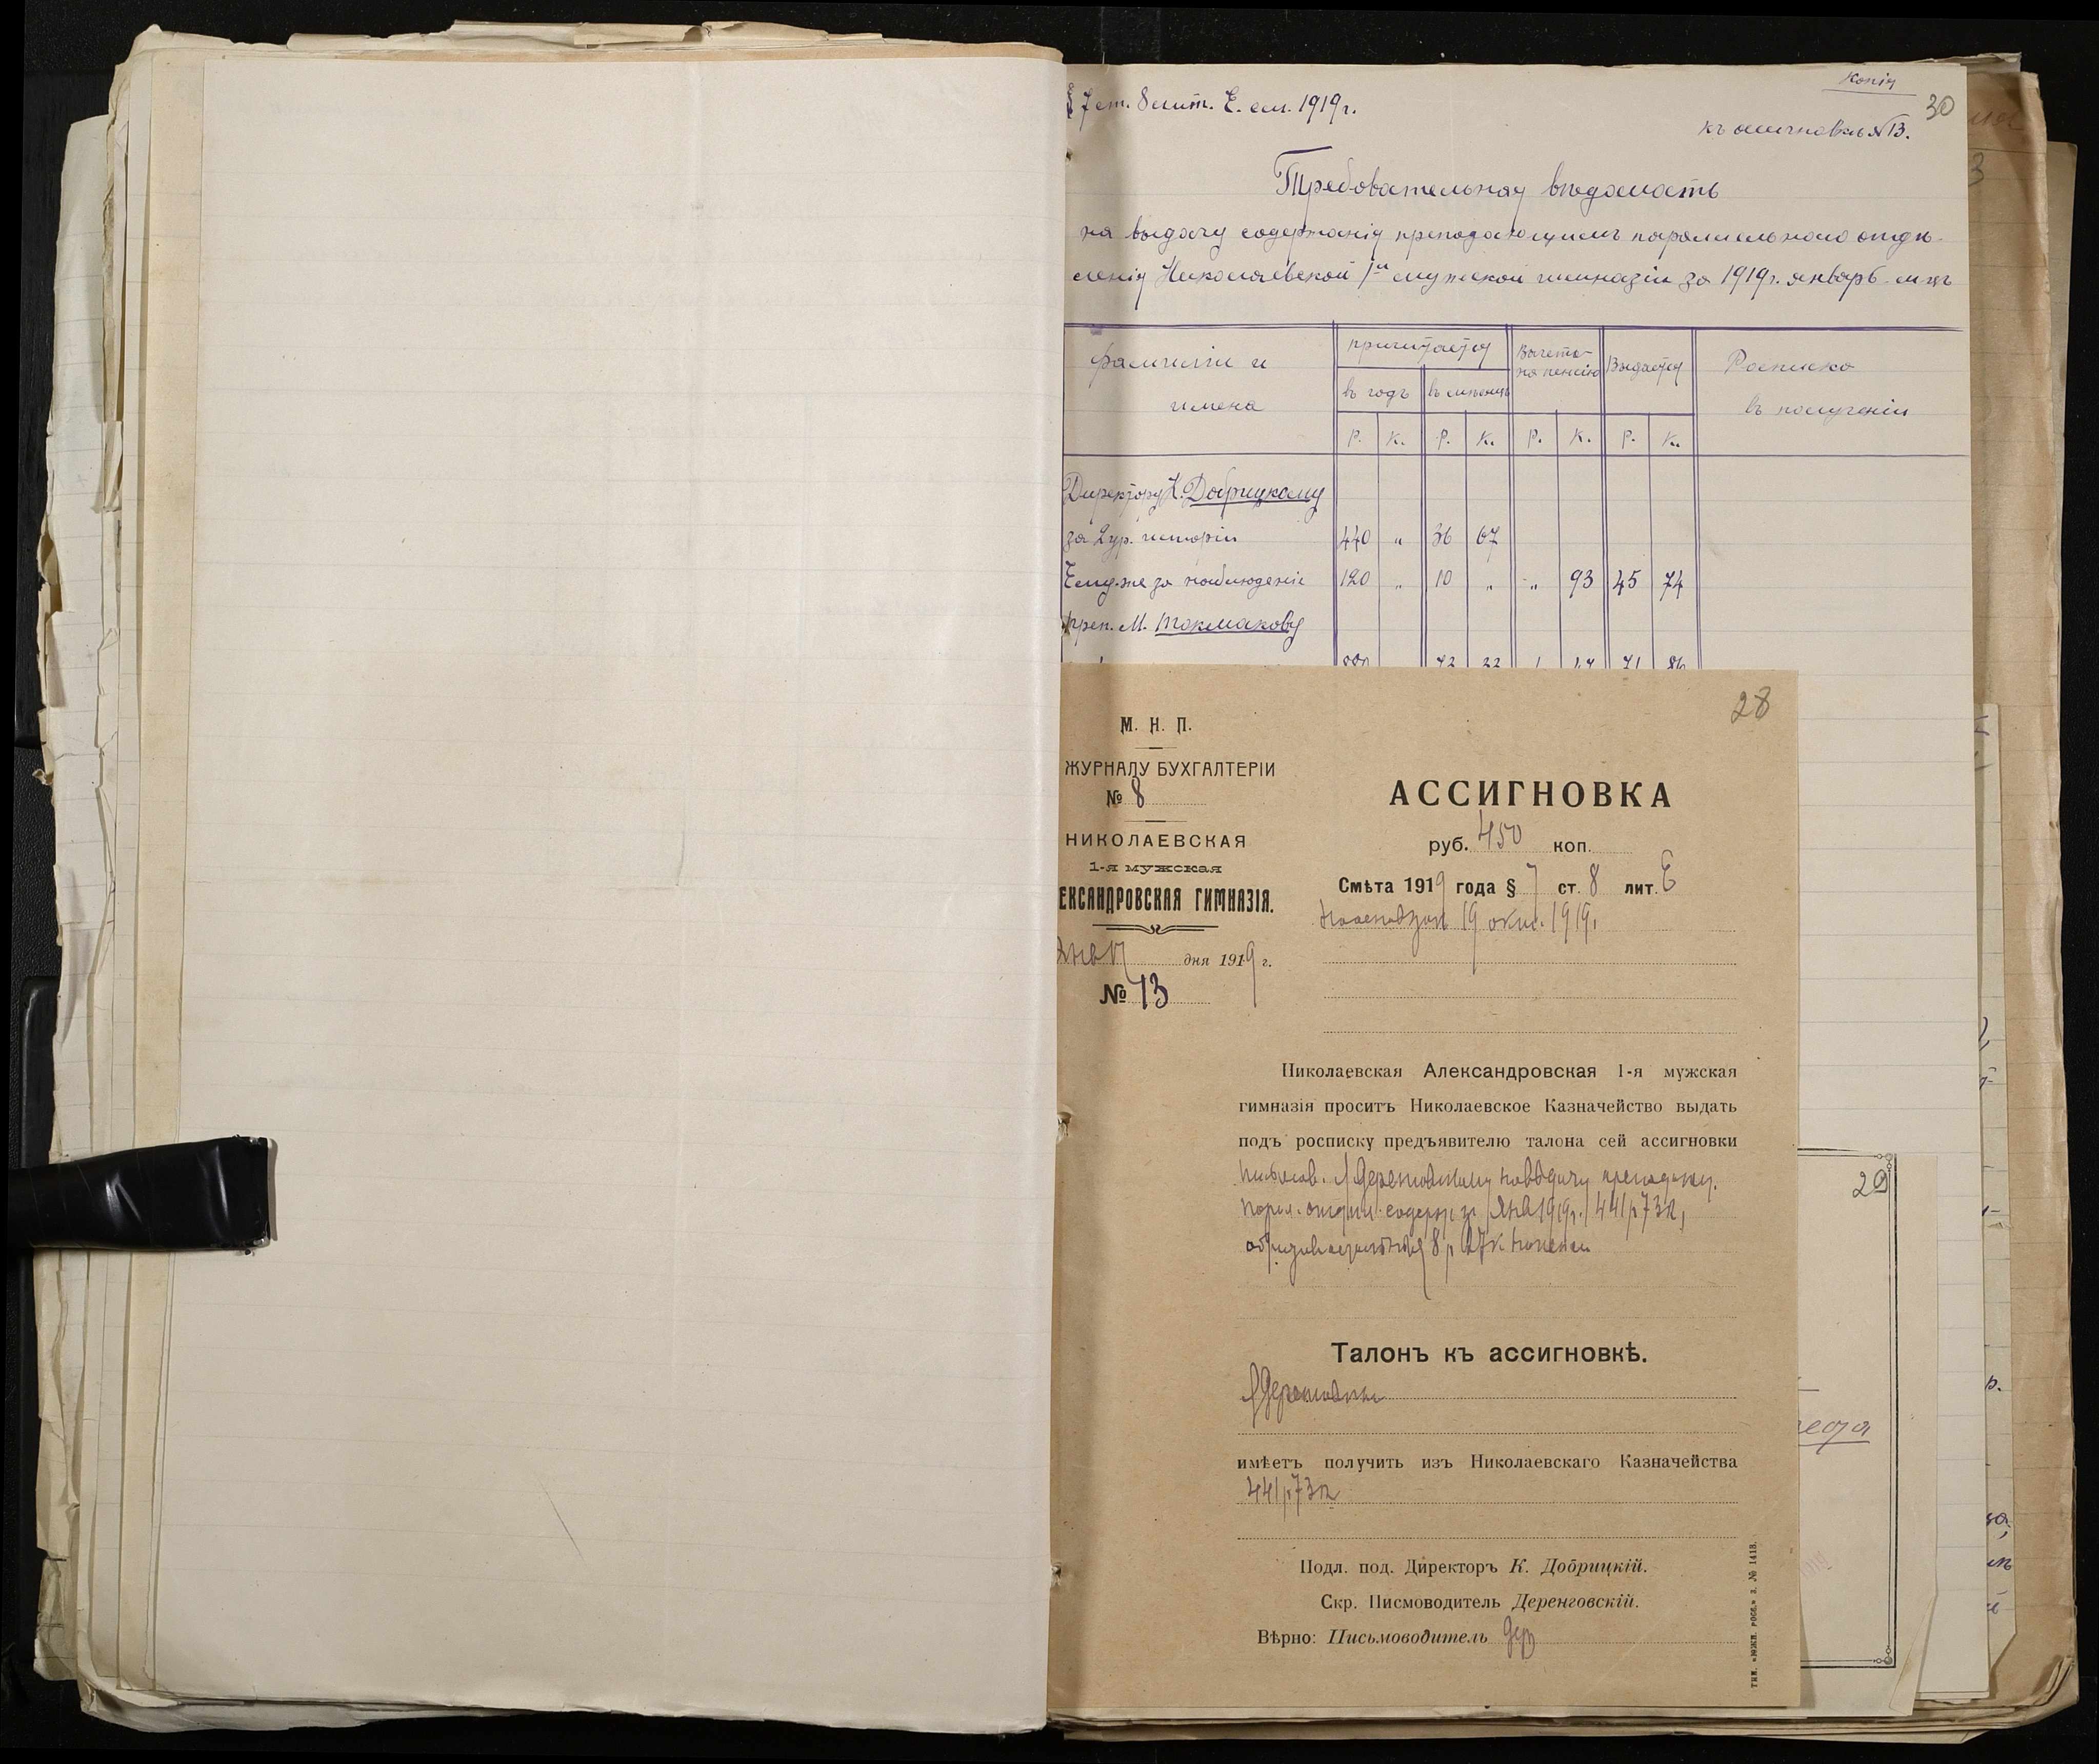 Копія
30
§ 7 ст. 8 лит. Е. см. 1919 г.
къ ассигновкѣ № 13.
Требовательная вѣдомость
на выдачу содержанія преподающимъ параллельнаго отдѣ-
ленія Николаевской 1ой мужской гимназіи за 1919 г. январь м-цъ
Фамиліи и имена
причитается
въ годъ
въ мѣсяцъ
Вычета на пенсію
Выдается
Росписка въ полученіи
Р. К. Р. К. Р. К. Р. К.
Директору К. Добрицкому
за 2 ур. исторіи 440 " 36 67
Ему-же за наблюденіе 120 " 10 " " 93 45 74
преп. М. Токмакову
880 73 33 1 47 71 86
28
М. Н. П.
ЖУРНАЛУ БУХГАЛТЕРІИ
№ 8
НИКОЛАЕВСКАЯ
1-я мужская
ЕКСАНДРОВСКАЯ ГИМНАЗІЯ.
Янв 17 дня 1919 г.
№ 13
АССИГНОВКА
руб. 450 коп.
Смѣта 1919 года § 7 ст. 8 лит. Е
19 1919
Николаевская Александровская 1-я мужская
гимназія проситъ Николаевское Казначейство выдать
подъ росписку предъявителю талона сей ассигновки
письмов. Деренговскому на выдачу преподающ.
парал. отдѣл. содерж. за Янв 1919 г. 441 р 73 к,
8 р 27 к пенсіи
Талонъ къ ассигновкѣ.
Деренговскій
имѣетъ получить изъ Николаевскаго Казначейства
441 р 73 к
Подл. под. Директоръ К. Добрицкій.
Скр. Письмоводитель Деренговскій.
Вѣрно: Письмоводитель Дер
ТИП. «ЮЖН. РОСС.» З. № 1418.
29